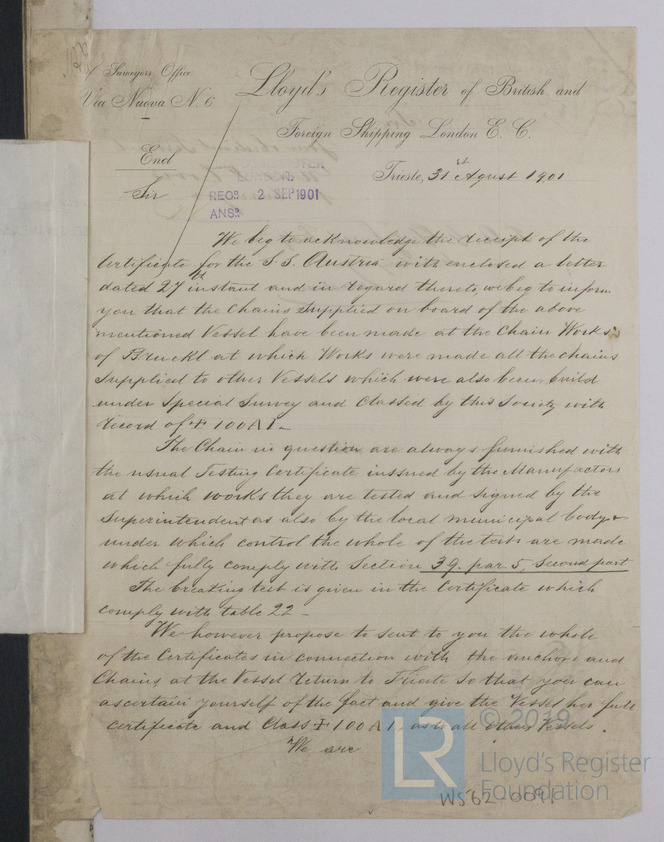 Surveyors Office
Via Nuova N. 6
Lloyd's Register of British and
Foreign Shipping London E. C.
Encl
Trieste, 31st Agust 1901
Sir
REGD 2 SEP 1901
ANSD
We beg to acknowledge the receipt of the
Certificate for the S.S. Austria with enclosed a letter
dated 27th instant and in regard thereto, we beg to inform
you that the Chains supplied on board of the above
mentioned Vessel have been made at the Chain Works
of Bruckl at which Works were made all the chains
supplied to other Vessels which were also been build
under Special Survey and Classed by this Society with
record of ✠ 100A1_
The Chain in question are always furnished with
the usual Testing Certificate inssued by the Manufactors
at which works they are tested and signed by the
Superintendent as also by the local municipal body &
under which control the whole of the tests are made
which fully comply with Section 39. par. 5, Second part
The breating test is given in the Certificate which
comply with table 22_
We however propose to sent to you the whole
of the Certificates in connection with the anchors and
Chains at the Vessel return to Trieste so that you can
ascertain yourself of the fact and give the Vessel her full
certificate and Class ✠ 100A1, as to all other Vessels.
We are
WS62-0091
LR
© 2019
Lloyd's Register
Foundation